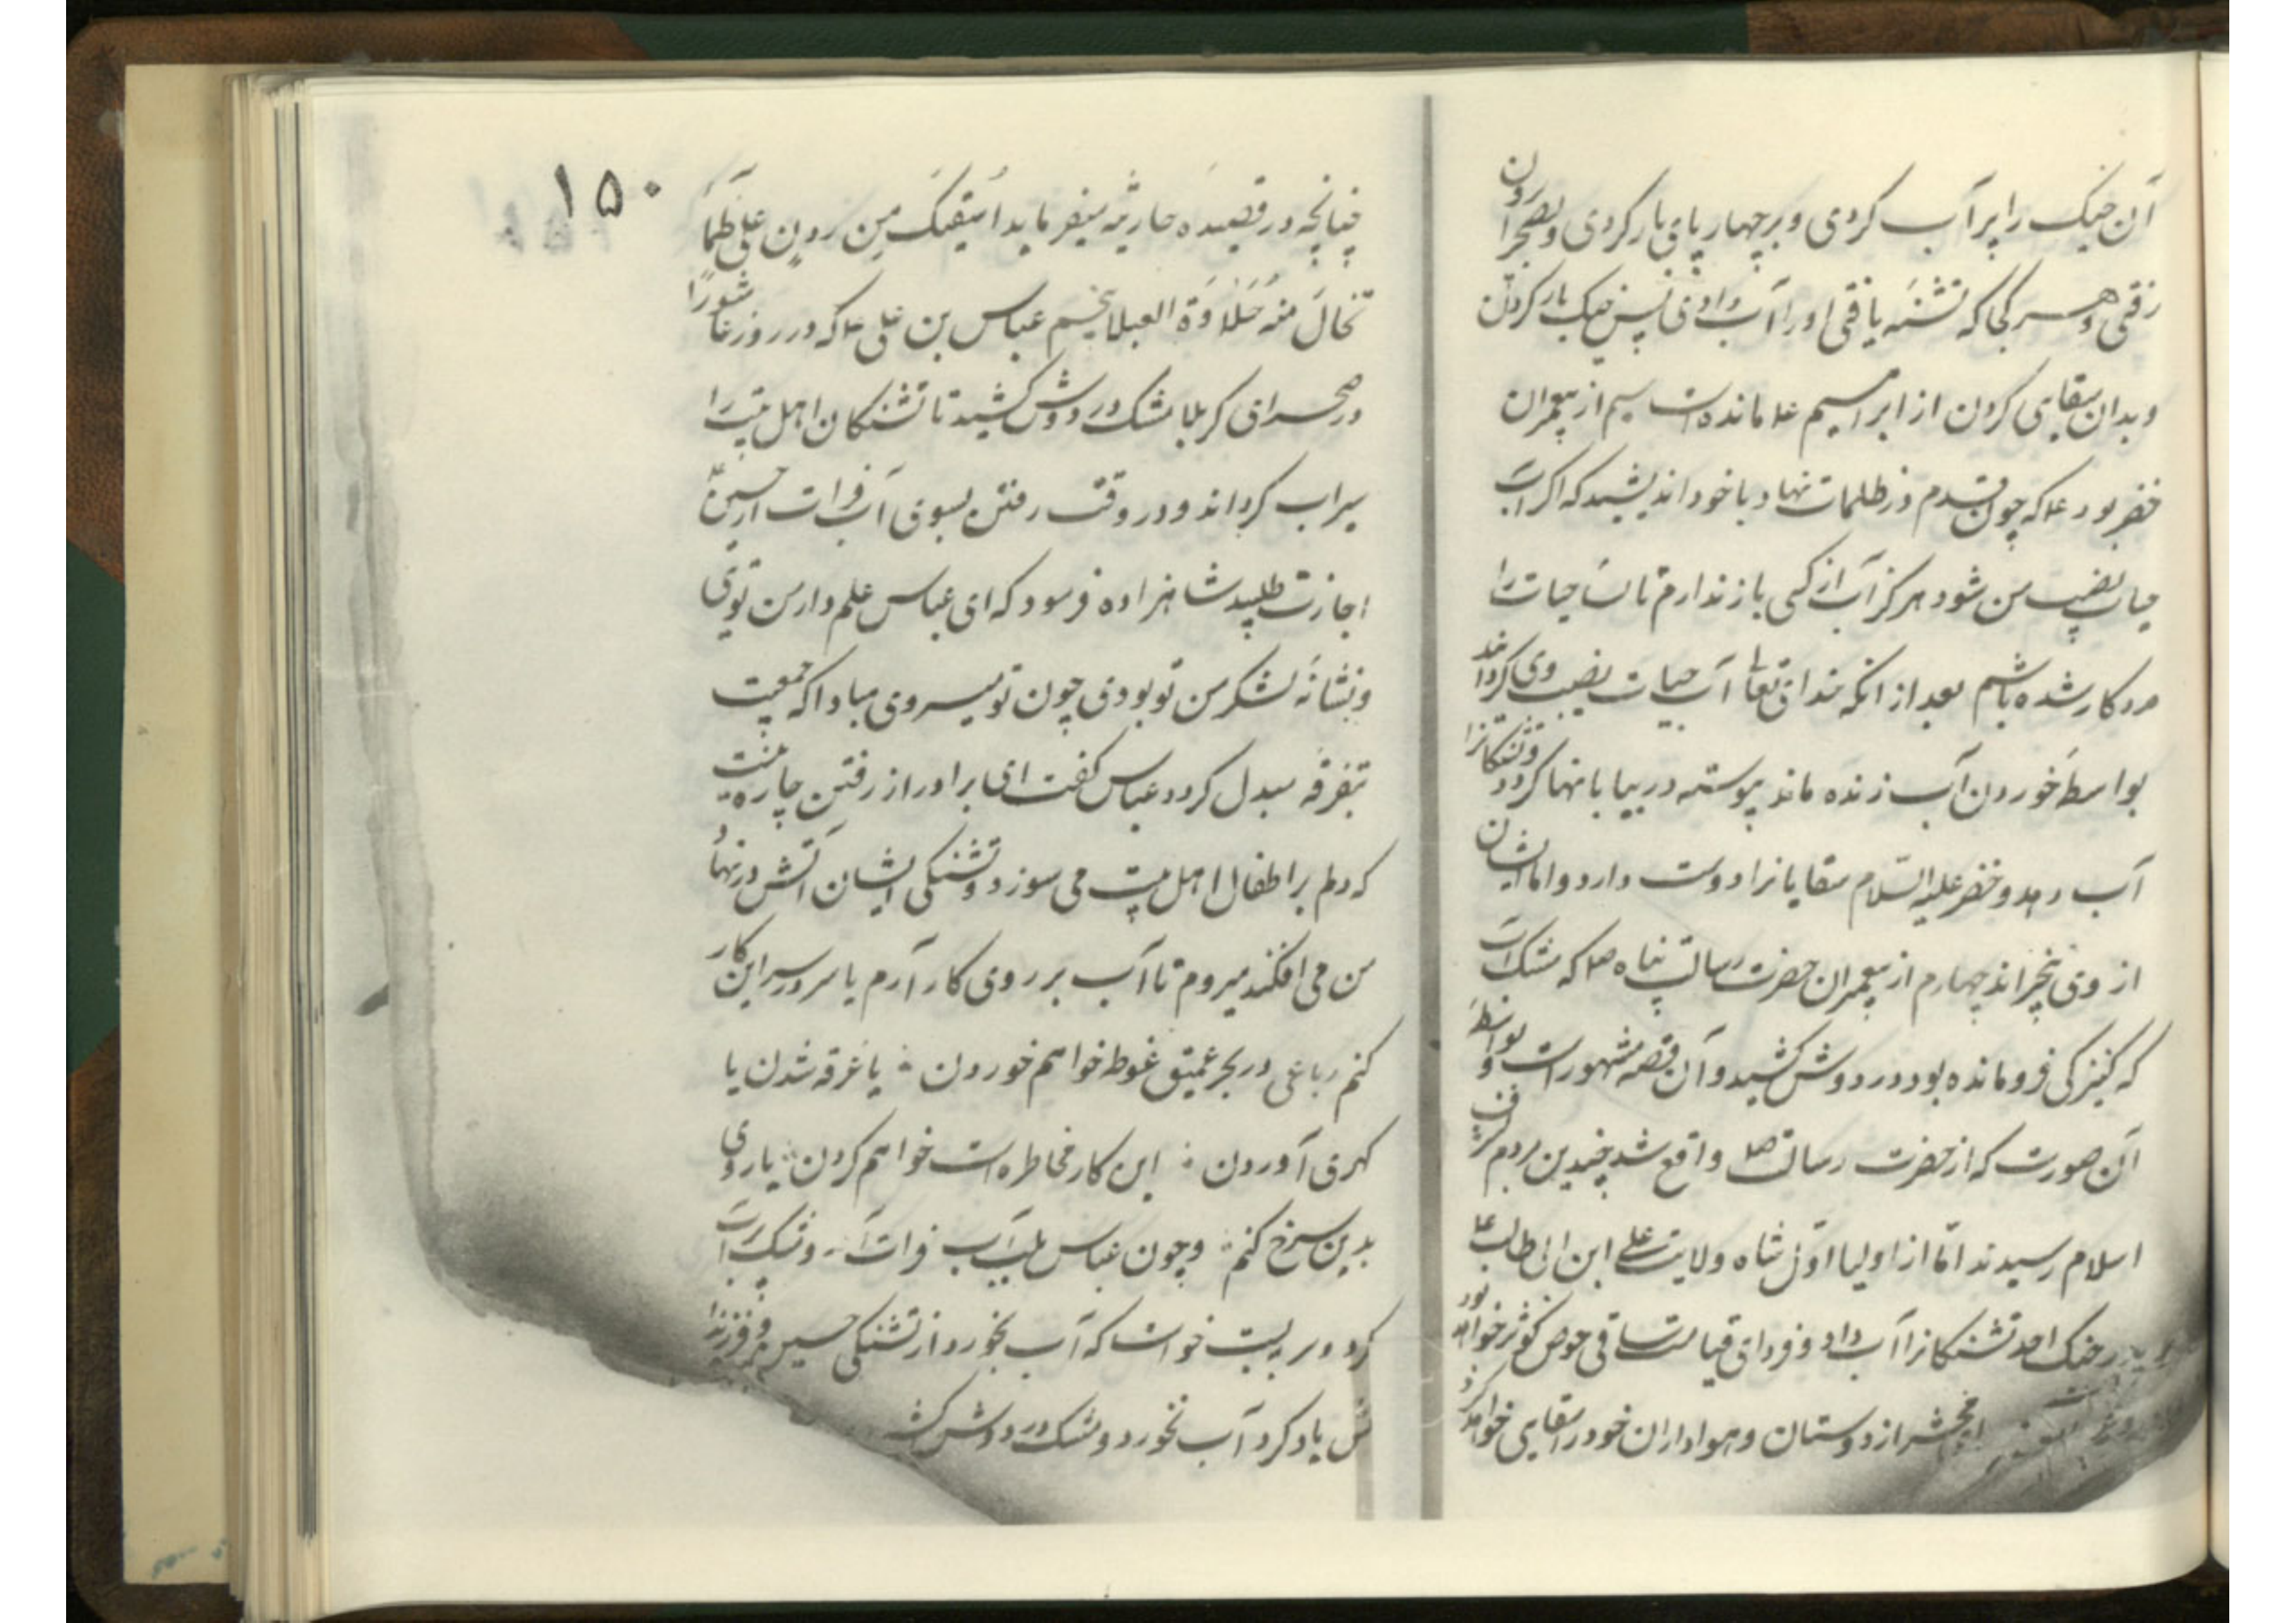 آن خیک را پر آب کردی و بر چهارپای بار کردی و بصحرا برون
رفتی و هر کجا که تشنه یافتی او را آب دادی پس خیک بار کردن
و بدان سقایی کردن از ابراهیم ع مانده است سیم از پیغمبران
خضر بود ع که چون قدم در ظلمات نهاد با خود اندیشید که اگر آب
حیات نصیب من شود هرگز آب از کسی باز ندارم تا
کار شده باشم بعد از انکه خدای تعالی آب حیات نصیب وی گرداند
بواسطهٔ خوردن آب زنده ماند پیوسته در بیابانها گردد و تشنگانرا
آب دهد و خضر علیه السلام سقایانرا دوست دارد و اما ایشان
از وی بیخبراند چهارم از پیغمبران حضرت رسالت پناه صلعم که مشک آب
که کنیزکی فرو مانده بود در دوش کشید و آن قصه مشهور است و بواسطهٔ
آن صورت که از حضرت رسالت صلعم واقع شد چندین مردم بشرف
اسلام رسیدند اما از اولیا اول شاه ولایت علی ابن ابی طالب ع
در جنک احد تشنکانرا آب داد و فردای قیامت ساقی حوض کوثر خواهد بود
از دوستان و هواداران خود را سقایی خواهد کرد
۱۵۰
چنانچه در قصیده حارثیه میفرماید اسقیک من بارد علی ظمأ
تخال منه حلاوة العسلا پنجم عباس بن علی ع که در روز عاشورا
در صحرای کربلا مشک در دوش کشید تا تشنکان اهل بیت را
سیراب کرداند و در وقت رفتن بسوی آب فرات از حسین ع
اجازت طلبید شاهزاده فرمود که ای عباس علم دار من توی
و نشانهٔ لشکر من تو بودی چون تو میروی مبادا که جمعیت
بتفرقه مبدل کردد عباس کفت ای برادر از رفتن چاره نیست
که دلم بر اطفال اهل بیت می سوزد و تشنکی ایشان آتش در نهاد
من می افکند میروم تا آب بر روی کار آرم یا سر در سر این کار
کنم رباعی در بحر عمیق غوطه خواهم خوردن یا غرقه شدن یا
کهری آوردن این کار مخاطره است خواهم کردن یا روی
بدین سرخ کنم و چون عباس بلب آب فرات آمد و مشک پر آب
کرد و بر بست خواست که آب بخورد از تشنکی حسین و فرزندا
نش یاد کرد آب نخورد و مشک در دوش کشید